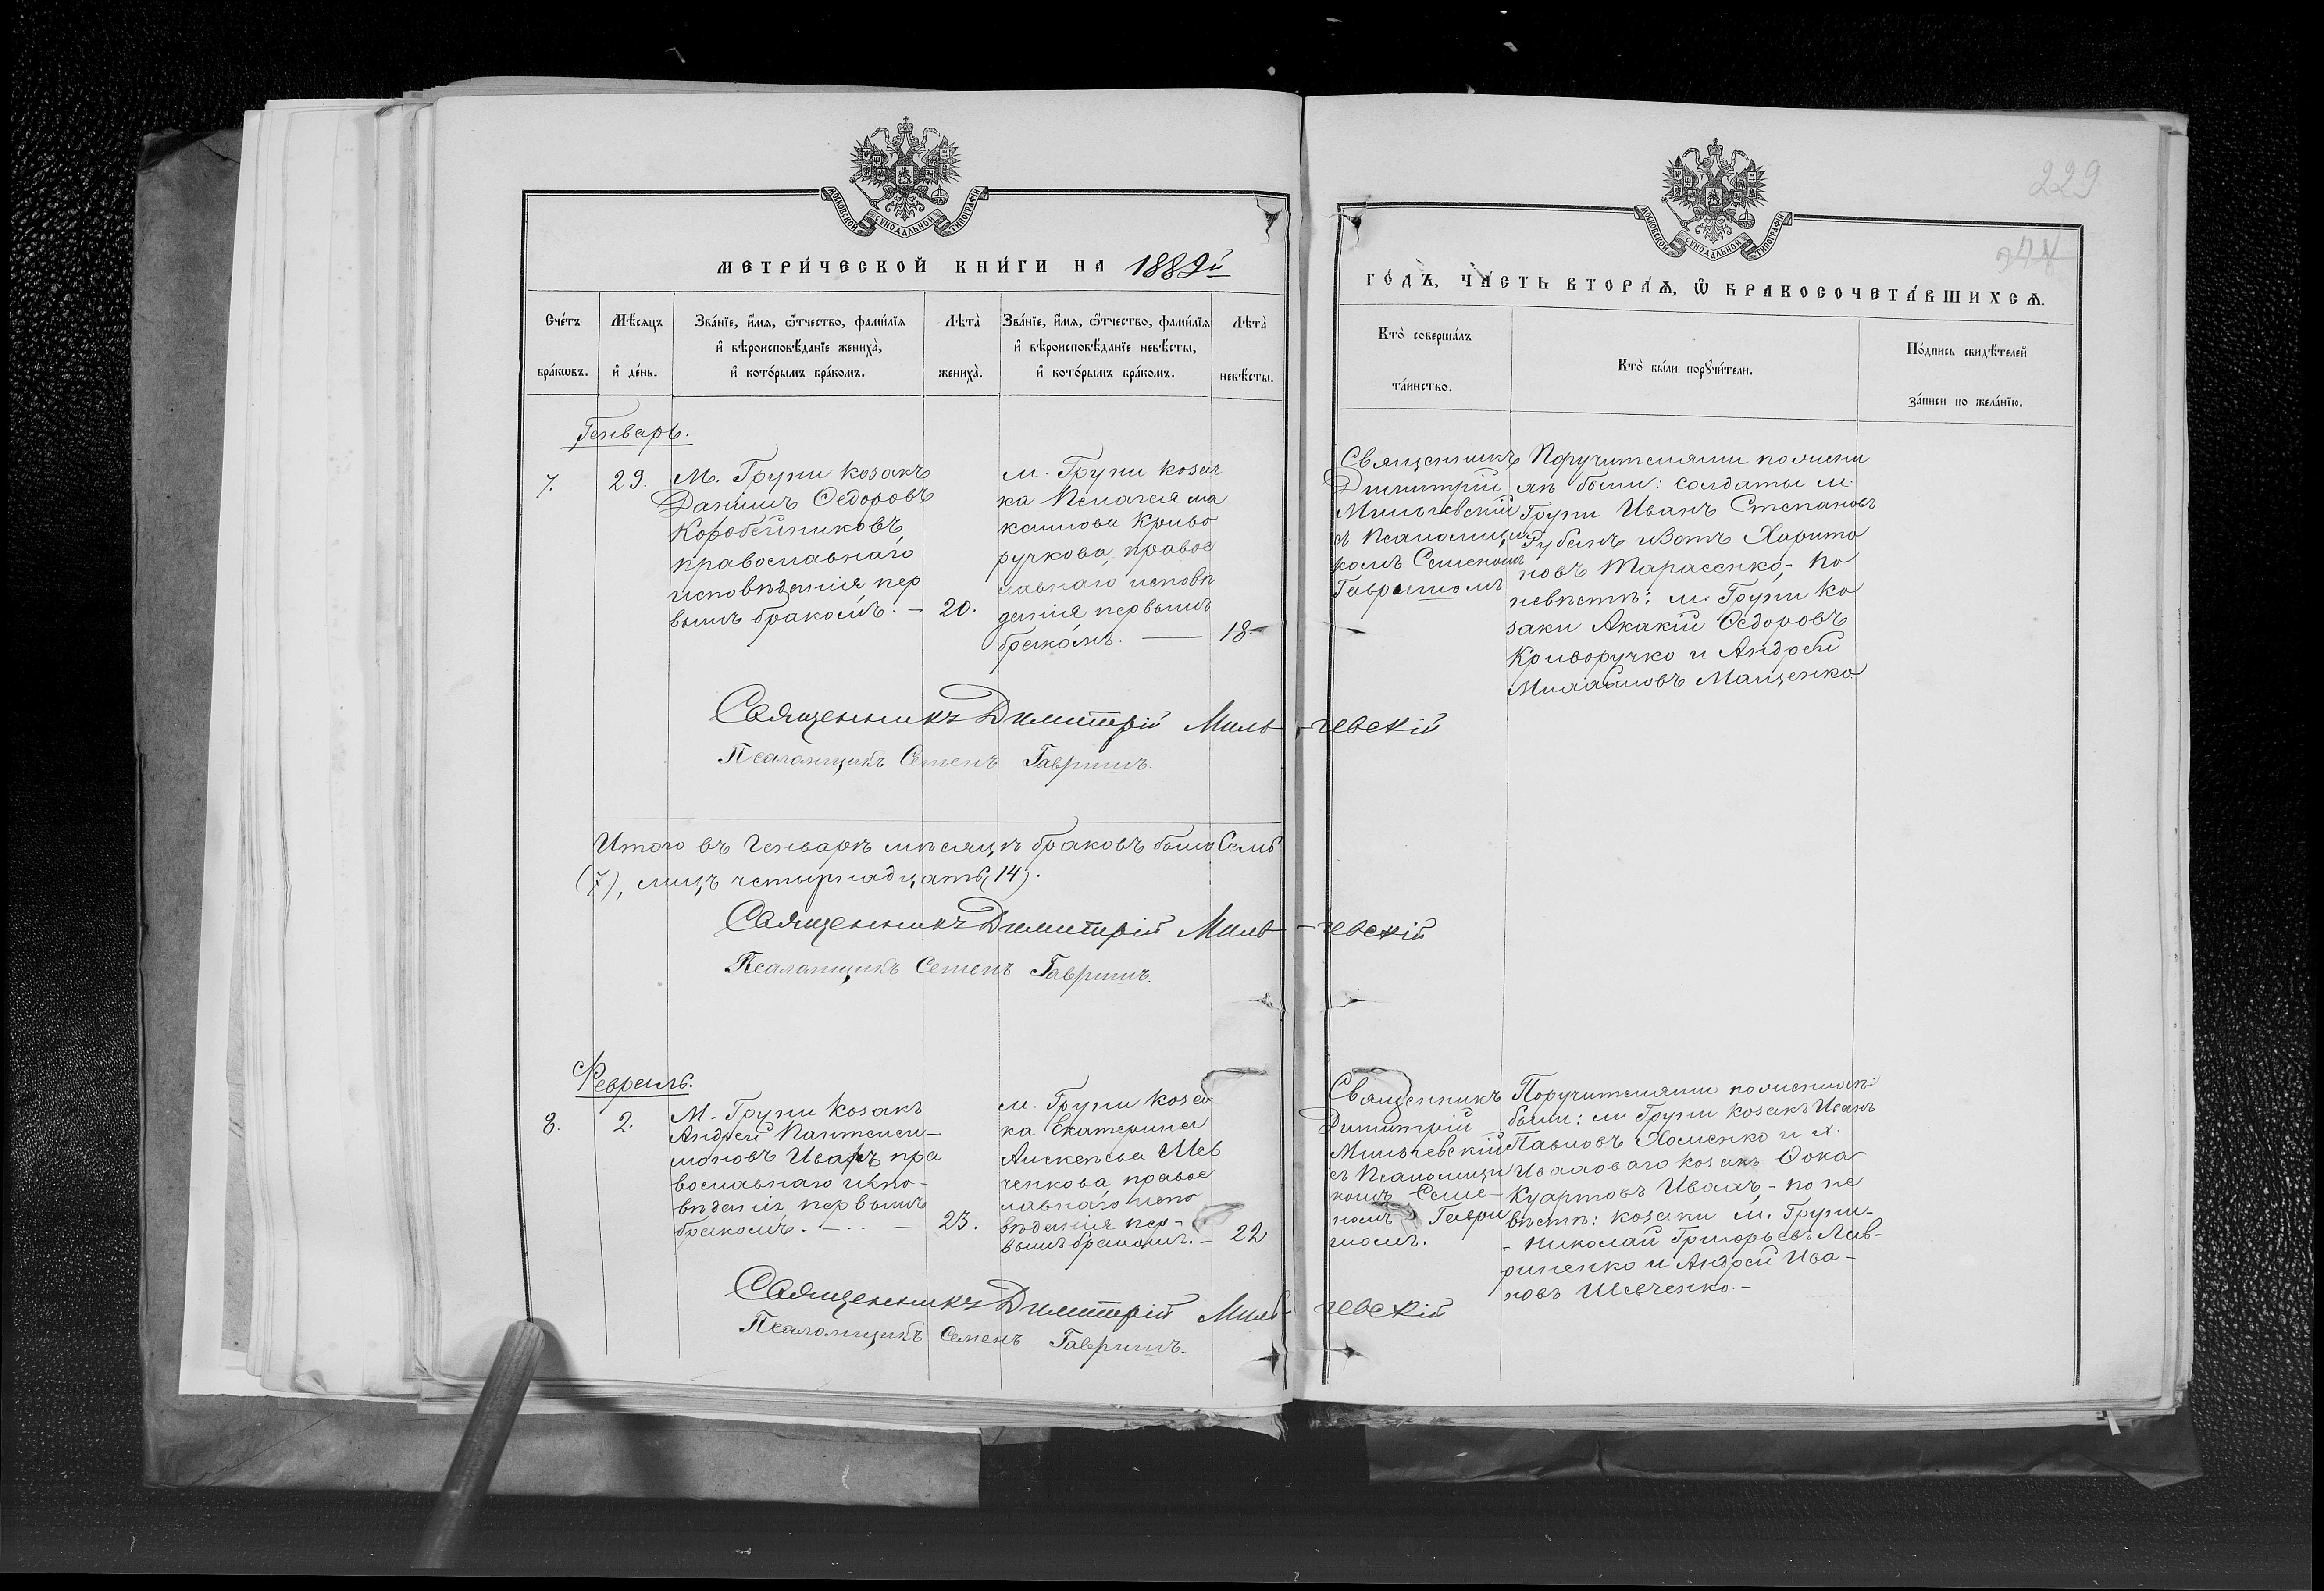 МОСКОВСКОЙ СѴНОДАЛЬНОЙ ТИПОГРАФІИ
МЕТРИ́ЧЕСКОЙ КНИ́ГИ НА 1889й
Сче́тъ бра́кѡвъ.
Мѣ́сѧцъ и҆ де́нь.
Зва́нїе, и҆́мѧ, ѻ҆́тчество, фами́лїѧ
и҆ вѣроисповѣ́данїе жениха̀,
и҆ кото́рымъ бра́комъ.
Лѣта̀ жениха̀.
Зва́нїе, и҆́мѧ, ѻ҆́тчество, фами́лїѧ
и҆ вѣроисповѣ́данїе невѣ́сты,
и҆ кото́рымъ бра́комъ.
Лѣта̀ невѣ́сты.
Генварь.
7.
29.
М. Груни козакъ
Даніилъ Ѳедоровъ
Коробейниковъ,
православнаго
исповѣданія пер
вымъ бракомъ. –
20.
м. Груни козач
ка Пелагея Ма
ксимова Криво
ручкова, правос
лавнаго исповѣ
данія первымъ
бракомъ. —
18
Священникъ Димитрій Миль-чевскій
Псаломщикъ Семенъ Гавришъ.
Итого въ Генварѣ мѣсяцѣ браковъ было Семь
(7), лицъ четырнадцать (14).
Священникъ Димитрій Миль-чевскій
Псаломщикъ Семенъ Гавришъ.
Февраль.
8.
2.
М. Груни козакъ
Андрей Пантелеи–
моновъ Ивахъ пра
вославнаго испо–
вѣданія, первымъ
бракомъ. –..–
23.
м. Груни козач
ка Екатерина
Алексѣева Шев
ченкова правос
лавнаго испо
вѣданія пер–
вымъ бракомъ. –
22
Священникъ Димитрій Миль-чевскій
Псаломщикъ Семенъ Гавришъ.
229
МОСКОВСКОЙ СѴНОДАЛЬНОЙ ТИПОГРАФІИ
ГО́ДЪ, ЧА́СТЬ ВТОРА́Ѧ, Ѽ БРАКОСОЧЕТА́ВШИХСѦ.
Кто̀ соверша́лъ
та́инство.
Кто̀ бы́ли порꙋчи́тели.
По́дпись свидѣ́телей
за́писи по жела́нїю.
Священникъ
Димитрій
Мильчевскій
съ Псаломщи
комъ Семеномъ
Гавришомъ
Поручителями по жени
хѣ были: солдаты м.
Груни Иванъ Степановъ
Рубанъ и Зотъ Харито
новъ Тарасенко, – по
невѣстѣ: м. Груни ко
заки Акакій Ѳедоровъ
Криворучко и Андрей
Михайловъ Мащенко
Священникъ
Димитрій
Мильчевскій
съ Псаломщи
комъ Семе–
номъ Гаври
шомъ.
Поручителями по женихѣ:
были: м. Груни козакъ Иванъ
Павловъ Хоменко и х.
Ивахового козакъ Ѳока
Ивахъ – по не
вѣстѣ: козаки м. Груни–
– Николай Григорьевъ Лав–
риненко и Андрей Ива–
новъ Шевченко. –